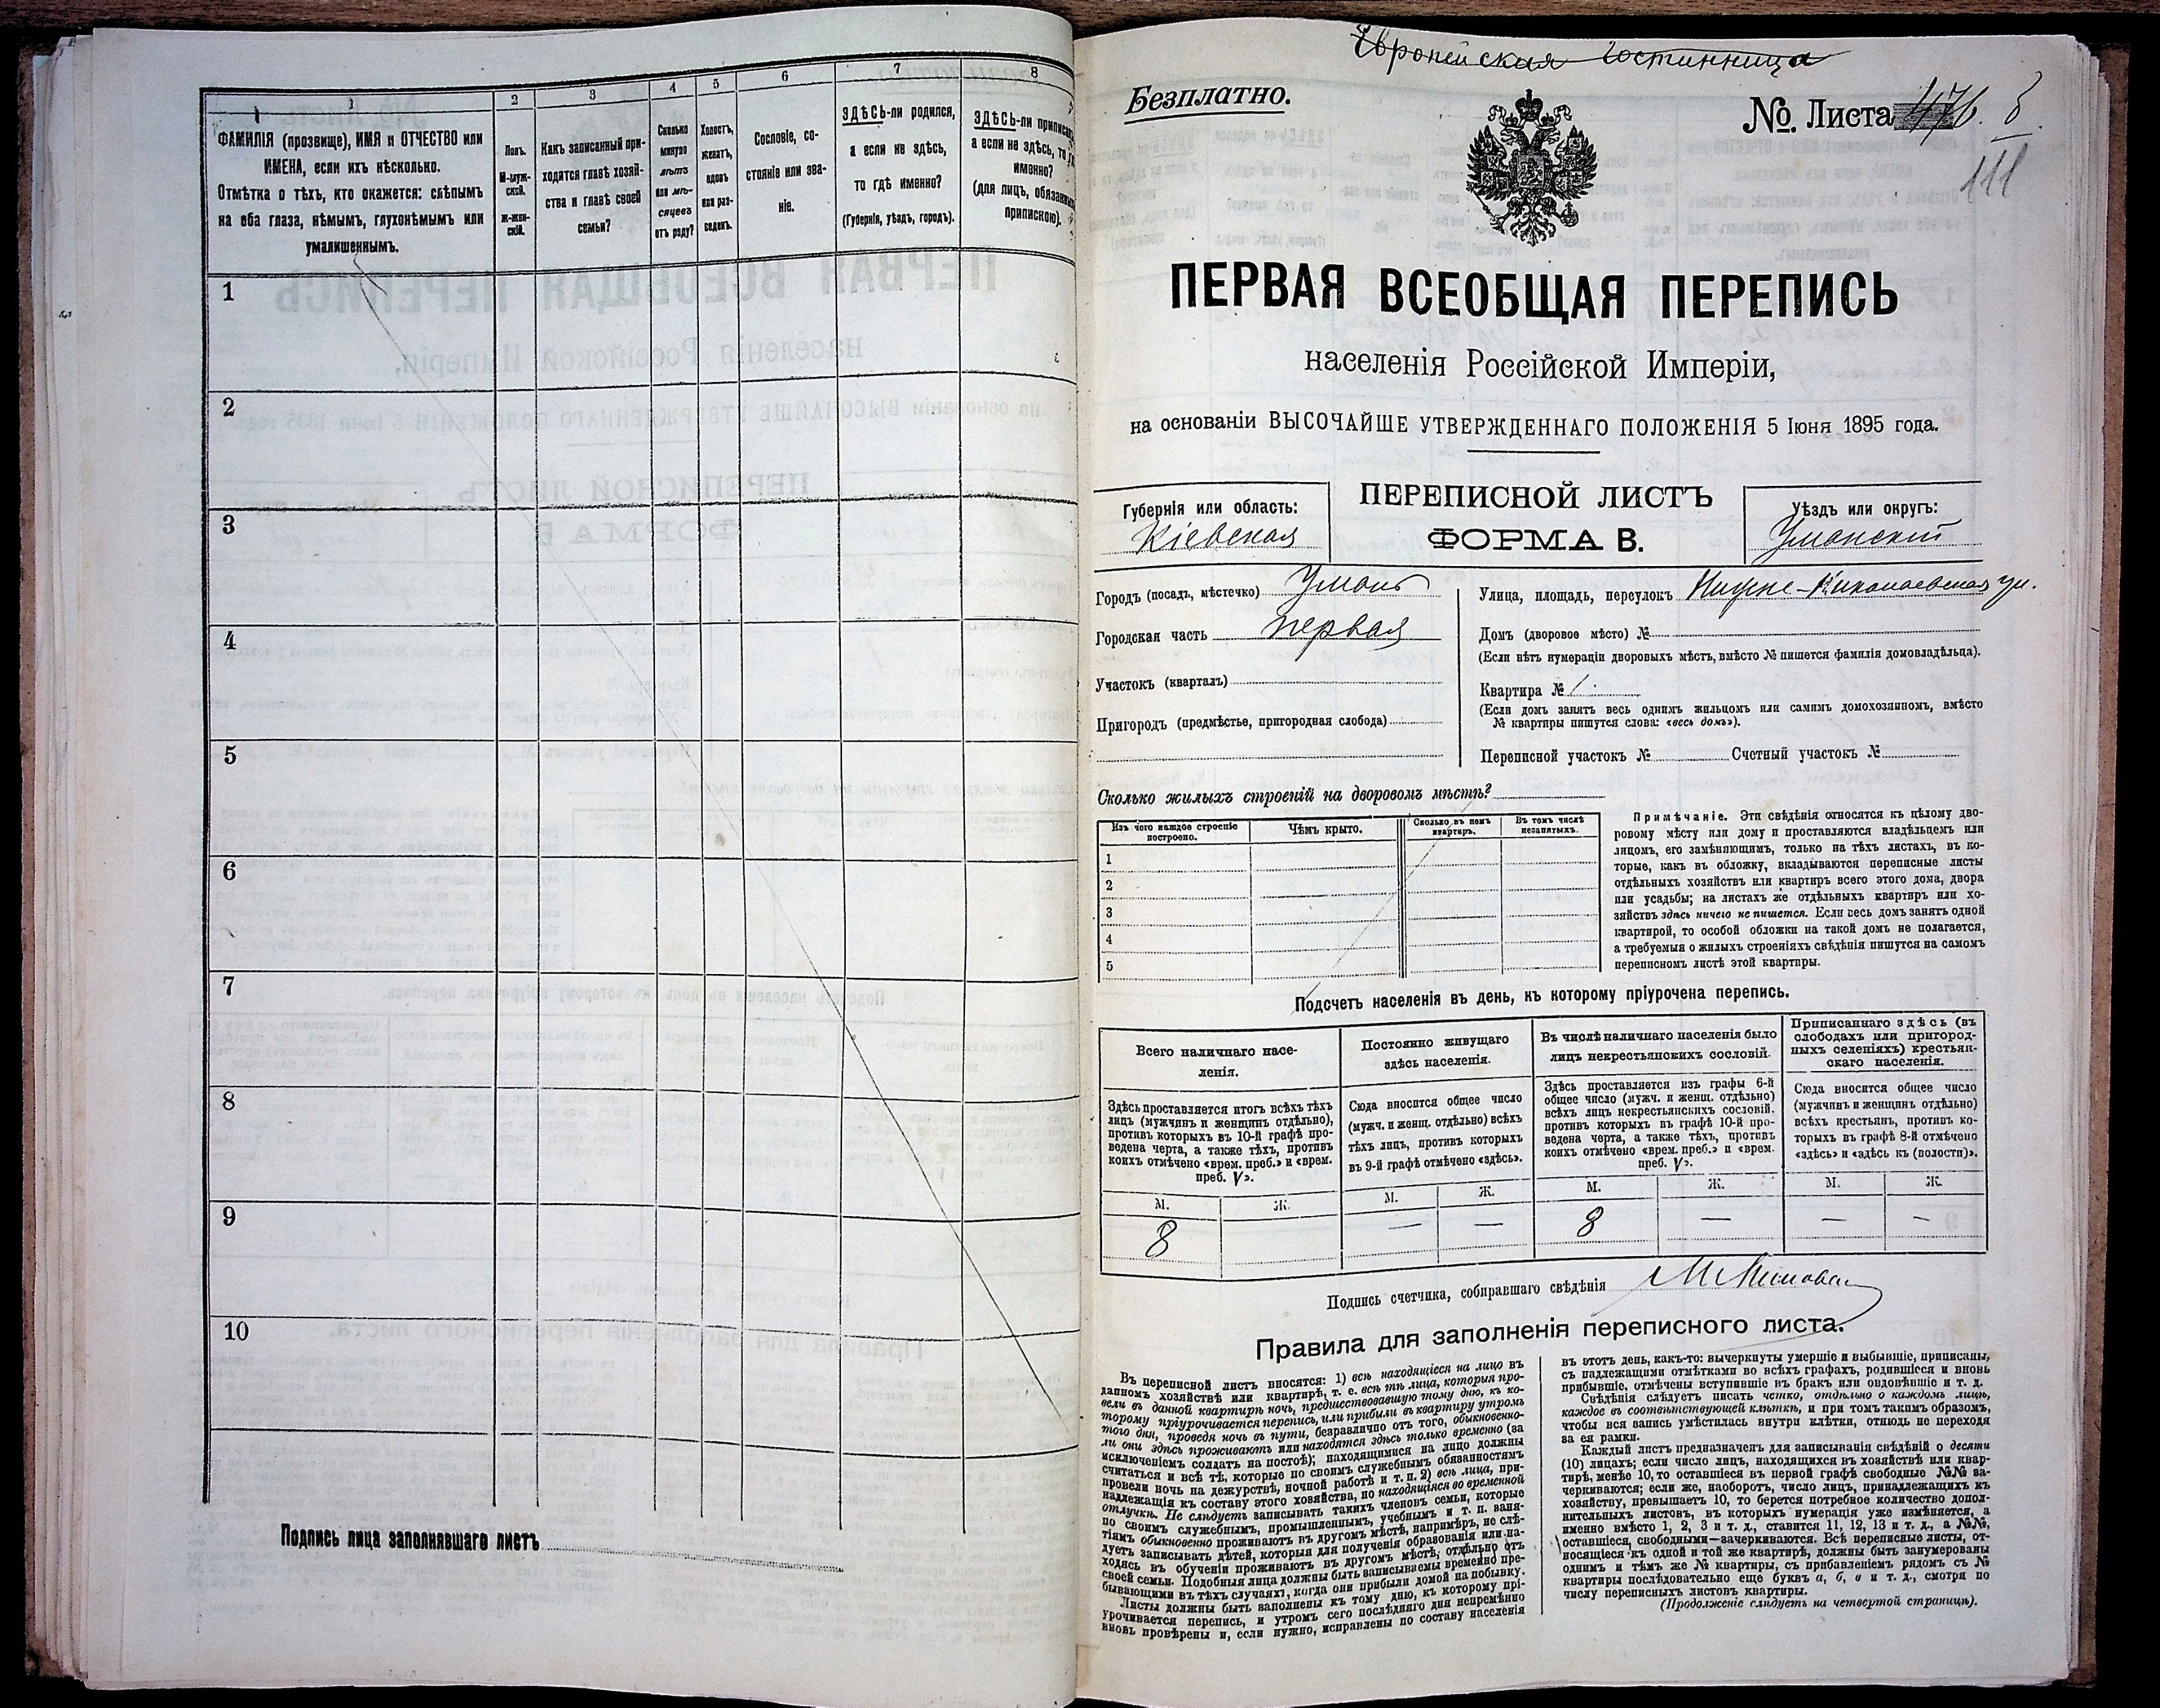 1
ФАМИЛІЯ (прозвище), ИМЯ и ОТЧЕСТВО или
ИМЕНА, если ихъ нѣсколько.
Отмѣтка о тѣхъ, кто окажется: слѣпымъ
на оба глаза, нѣмымъ, глухонѣмымъ или
умалишеннымъ.
2
Полъ.
М-муж-
ской.
ж-жен-
скій.
3
Какъ записанный при-
ходится главѣ хозяй-
ства и главѣ своей
семьи?
4
Сколько
минуло
лѣтъ
или мѣ-
сяцевъ
отъ роду?
5
Холостъ,
женатъ,
вдовъ
или раз-
веденъ.
6
Сословіе, со-
стояніе или зва-
ніе.
7
ЗДѢСЬ-ли родился,
а если не здѣсь,
то гдѣ именно?
(Губернія, уѣздъ, городъ).
8
ЗДѢСЬ-ли приписанъ
а если не здѣсь, то гдѣ
именно?
(для лицъ, обязанныхъ
припискою).
1
2
3
4
5
6
7
8
9
10
Подпись лица заполнявшаго листъ
Европейская гостинница
Безплатно.
№. Листа
111
ПЕРВАЯ ВСЕОБЩАЯ ПЕРЕПИСЬ
населенія Россійской Имперіи,
на основаніи ВЫСОЧАЙШЕ УТВЕРЖДЕННАГО ПОЛОЖЕНІЯ 5 Іюня 1895 года.
Губернія или область:
Кіевская
ПЕРЕПИСНОЙ ЛИСТЪ
ФОРМА В.
Уѣздъ или округъ:
Уманскій
Городъ (посадъ, мѣстечко) Умань
Городская часть первая
Участокъ (кварталъ)
Пригородъ (предмѣстье, пригородная слобода)
Улица, площадь, переулокъ Нижне-Николаевская ул.
Домъ (дворовое мѣсто) №
(Если нѣтъ нумераціи дворовыхъ мѣстъ, вмѣсто № пишется фамилія домовладѣльца).
Квартира № 1.
(Если домъ занятъ весь однимъ жильцомъ или самимъ домохозяиномъ, вмѣсто
№ квартиры пишутся слова: «весь домъ»).
Переписной участокъ № Счетный участокъ №
Сколько жилыхъ строеній на дворовомъ мѣстѣ?
Изъ чего каждое строеніе
построено.
Чѣмъ крыто.
Сколько въ немъ
квартиръ.
Въ томъ числѣ
незанятыхъ.
1
2
3
4
5
Примѣчаніе. Эти свѣдѣнія относятся къ цѣлому дво-
ровому мѣсту или дому и проставляются владѣльцемъ или
лицомъ, его замѣняющимъ, только на тѣхъ листахъ, въ ко-
торые, какъ въ обложку, вкладываются переписные листы
отдѣльныхъ хозяйствъ или квартиръ всего этого дома, двора
или усадьбы; на листахъ же отдѣльныхъ квартиръ или хо-
зяйствъ здѣсь ничего не пишется. Если весь домъ занятъ одной
квартирой, то особой обложки на такой домъ не полагается,
а требуемыя о жилыхъ строеніяхъ свѣдѣнія пишутся на самомъ
переписномъ листѣ этой квартиры.
Подсчетъ населенія въ день, къ которому пріурочена перепись.
Всего наличнаго насе-
ленія.
Здѣсь проставляется итогъ всѣхъ тѣхъ
лицъ (мужчинъ и женщинъ отдѣльно),
противъ которыхъ въ 10-й графѣ про-
ведена черта, а также тѣхъ, противъ
коихъ отмѣчено «врем. преб.» и «врем.
преб. V».
Постоянно живущаго
здѣсь населенія.
Сюда вносится общее число
(мужч. и женщ. отдѣльно) всѣхъ
тѣхъ лицъ, противъ которыхъ
въ 9-й графѣ отмѣчено «здѣсь».
Въ числѣ наличнаго населенія было
лицъ некрестьянскихъ сословій.
Здѣсь проставляется изъ графы 6-й
общее число (мужч. и женщ. отдѣльно)
всѣхъ лицъ некрестьянскихъ сословій,
противъ которыхъ въ графѣ 10-й про-
ведена черта, а также тѣхъ, противъ
коихъ отмѣчено «врем. преб.» и «врем.
преб. V».
Приписаннаго здѣсь (въ
слободахъ или пригород-
ныхъ селеніяхъ) крестьян-
скаго населенія.
Сюда вносится общее число
(мужчинъ и женщинъ отдѣльно)
всѣхъ крестьянъ, противъ ко-
торыхъ въ графѣ 8-й отмѣчено
«здѣсь» и «здѣсь къ (волости)».
М. Ж. М. Ж. М. Ж. М. Ж.
8 — — 8 — — —
Подпись счетчика, собиравшаго свѣдѣнія
Правила для заполненія переписного листа.
Въ переписной листъ вносятся: 1) всѣ находящіеся на лицо въ
данномъ хозяйствѣ или квартирѣ, т. е. всѣ тѣ лица, которыя про-
вели въ данной квартирѣ ночь, предшествовавшую тому дню, къ ко-
торому пріурочивается перепись, или прибыли въ квартиру утромъ
того дня, проведя ночь въ пути, безразлично отъ того, обыкновенно-
ли они здѣсь проживаютъ или находятся здѣсь только временно (за
исключеніемъ солдатъ на постоѣ); находящимися на лицо должны
считаться и всѣ тѣ, которые по своимъ служебнымъ обязанностямъ
провели ночь на дежурствѣ, ночной работѣ и т. п. 2) всѣ лица, при-
надлежащія къ составу этого хозяйства, но находящіяся во временной
отлучкѣ. Не слѣдуетъ записывать такихъ членовъ семьи, которые
по своимъ служебнымъ, промышленнымъ, учебнымъ и т. п. заня-
тіямъ обыкновенно проживаютъ въ другомъ мѣстѣ, напримѣръ, не слѣ-
дуетъ записывать дѣтей, которыя для полученія образованія или на-
ходясь въ обученіи проживаютъ въ другомъ мѣстѣ, отдѣльно отъ
своей семьи. Подобныя лица должны быть записываемы временно пре-
бывающими въ тѣхъ случаяхъ, когда они прибыли домой на побывку.
Листы должны быть заполнены къ тому дню, къ которому прі-
урочивается перепись, и утромъ сего послѣдняго дня непремѣнно
вновь провѣрены и, если нужно, исправлены по составу населенія
въ этотъ день, какъ-то: вычеркнуты умершіе и выбывшіе, приписаны,
съ надлежащими отмѣтками во всѣхъ графахъ, родившіеся и вновь
прибывшіе, отмѣчены вступившіе въ бракъ или овдовѣвшіе и т. д.
Свѣдѣнія слѣдуетъ писать четко, отдѣльно о каждомъ лицѣ,
каждое въ соотвѣтствующей клѣткѣ, и при томъ такимъ образомъ,
чтобы вся запись умѣстилась внутри клѣтки, отнюдь не переходя
за ея рамки.
Каждый листъ предназначенъ для записыванія свѣдѣній о десяти
(10) лицахъ; если число лицъ, находящихся въ хозяйствѣ или квар-
тирѣ, менѣе 10, то оставшіеся въ первой графѣ свободные №№ за-
черкиваются; если же, наоборотъ, число лицъ, принадлежащихъ къ
хозяйству, превышаетъ 10, то берется потребное количество допол-
нительныхъ листовъ, въ которыхъ нумерація уже измѣняется, а
именно вмѣсто 1, 2, 3 и т. д., ставится 11, 12, 13 и т. д., а №№,
оставшіеся свободными—зачеркиваются. Всѣ переписные листы, от-
носящіеся къ одной и той же квартирѣ, должны быть занумерованы
однимъ и тѣмъ же № квартиры, съ прибавленіемъ рядомъ съ №
квартиры послѣдовательно еще буквъ а, б, в и т. д., смотря по
числу переписныхъ листовъ квартиры.
(Продолженіе слѣдуетъ на четвертой страницѣ).